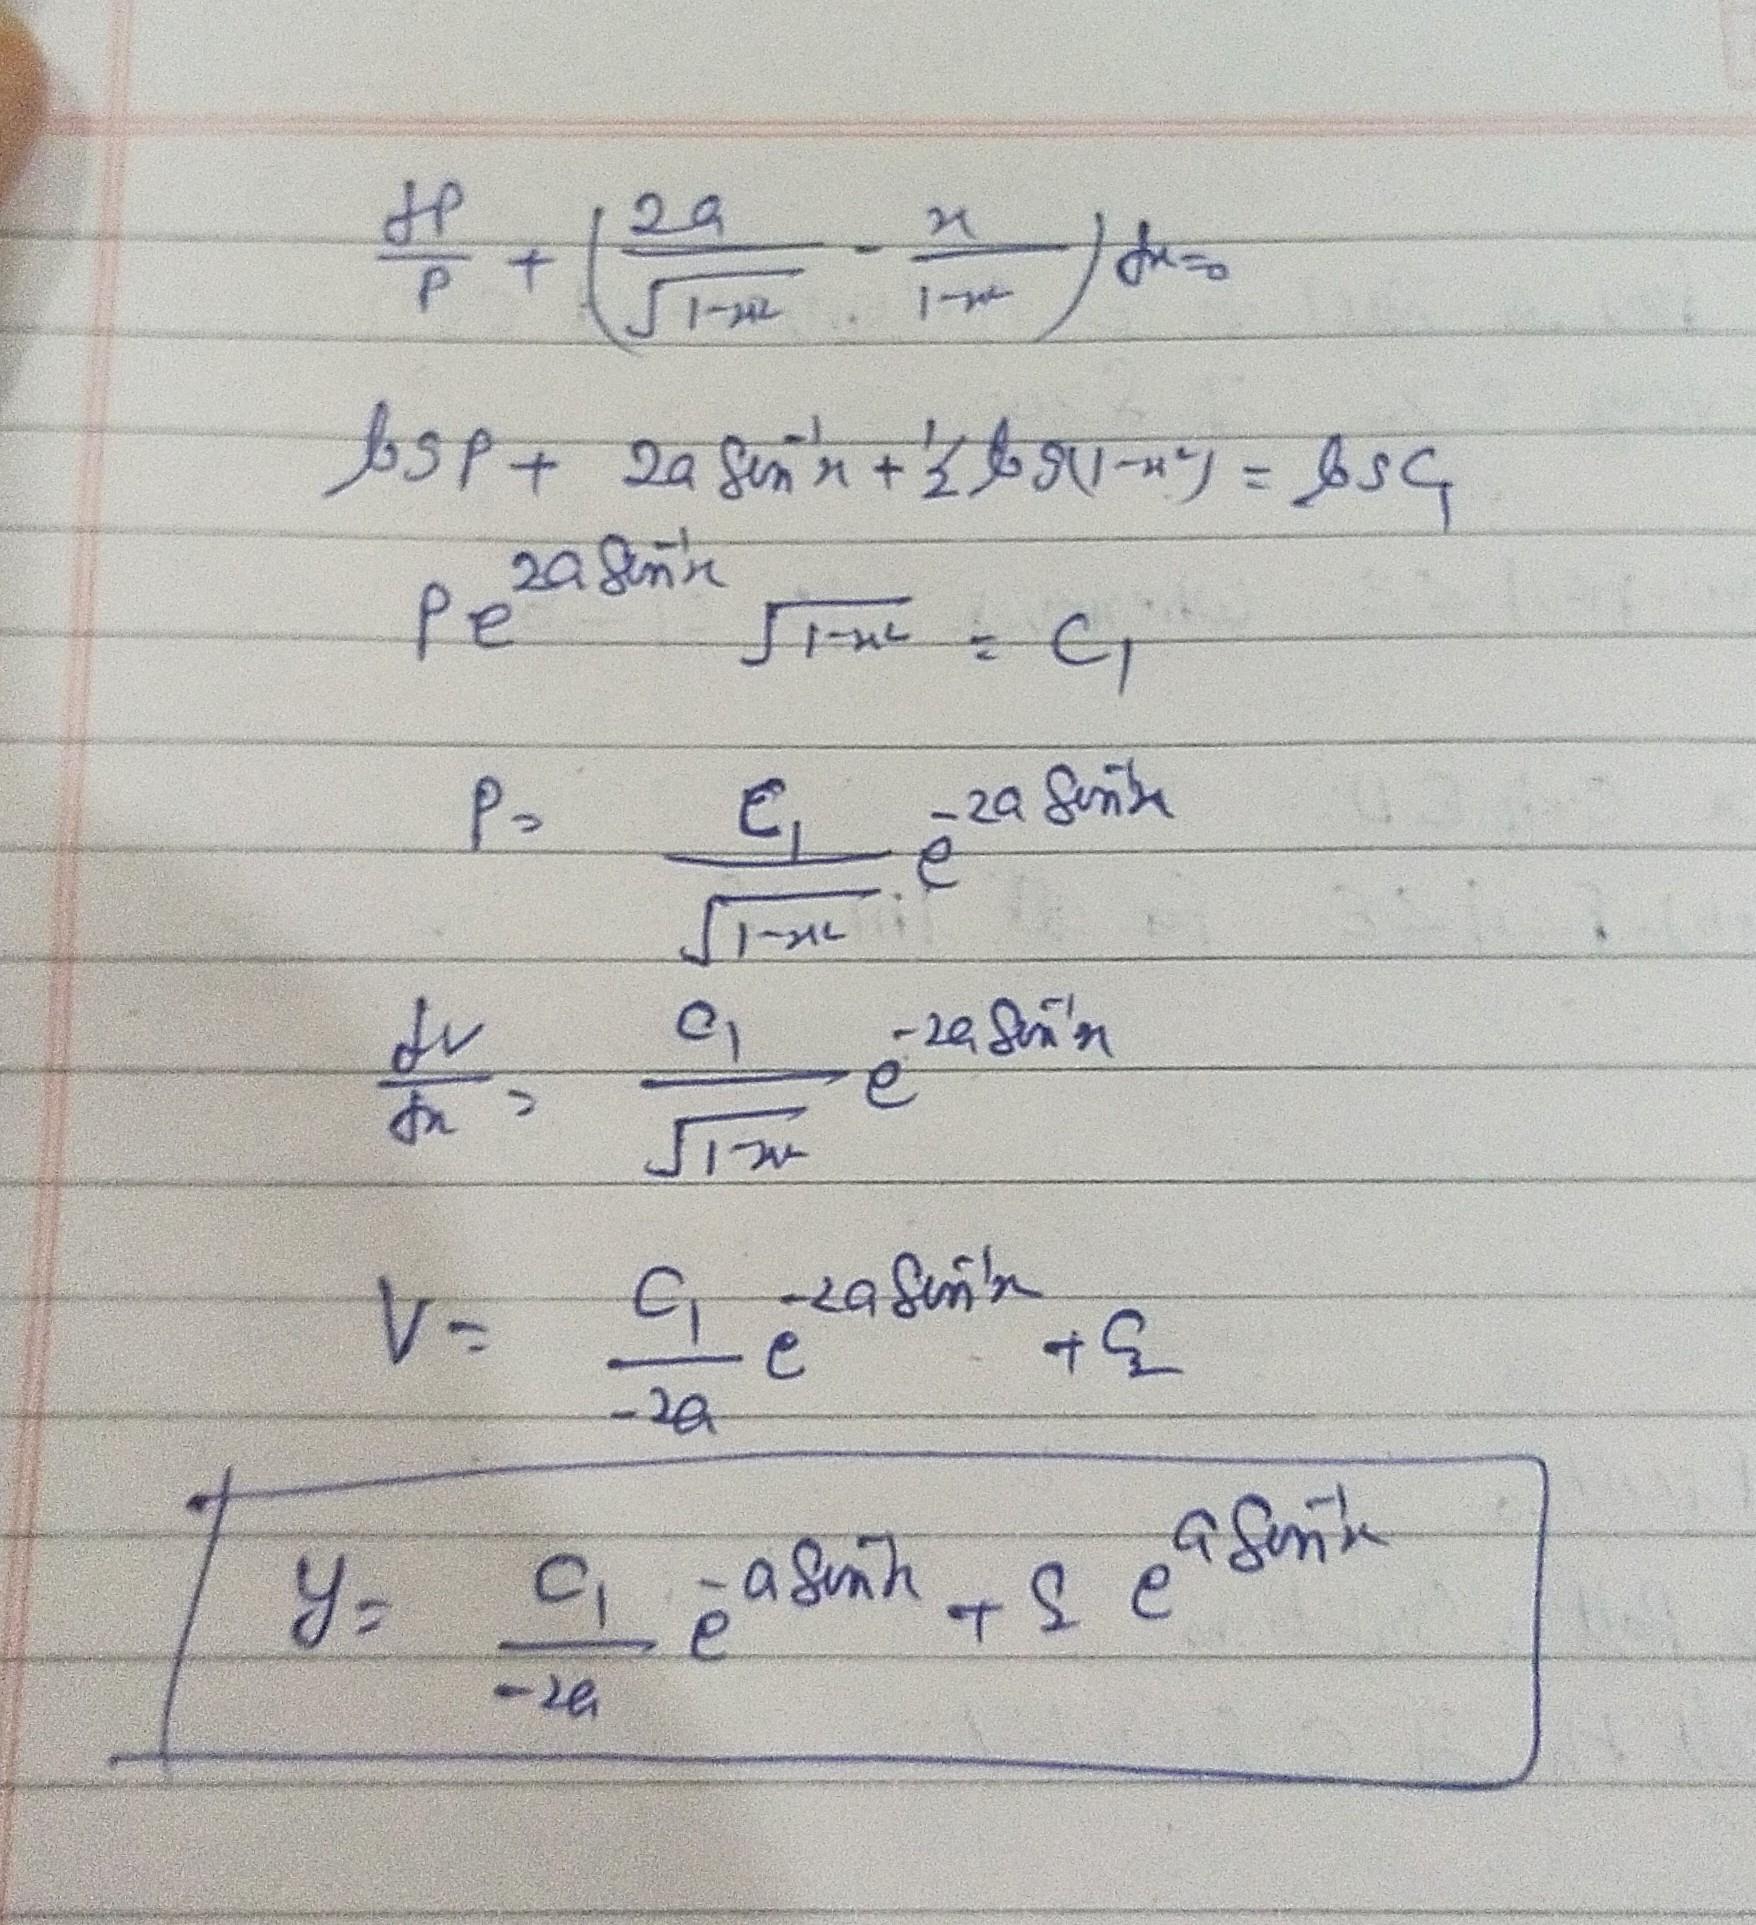 dP/P + (2a/√(1-x²) - x/(1-x²)) dx=0
log P + 2a Sin⁻¹x + ½ log(1-x²) = log C₁
P e^(2a Sin⁻¹x) √(1-x²) = C₁
P = C₁/√(1-x²) e^(-2a Sin⁻¹x)
dv/dx = C₁/√(1-x²) e^(-2a Sin⁻¹x)
V = C₁/-2a e^(-2a Sin⁻¹x) + C₂
y = C₁/-2a e^(-a Sin⁻¹x) + C₂ e^(a Sin⁻¹x)